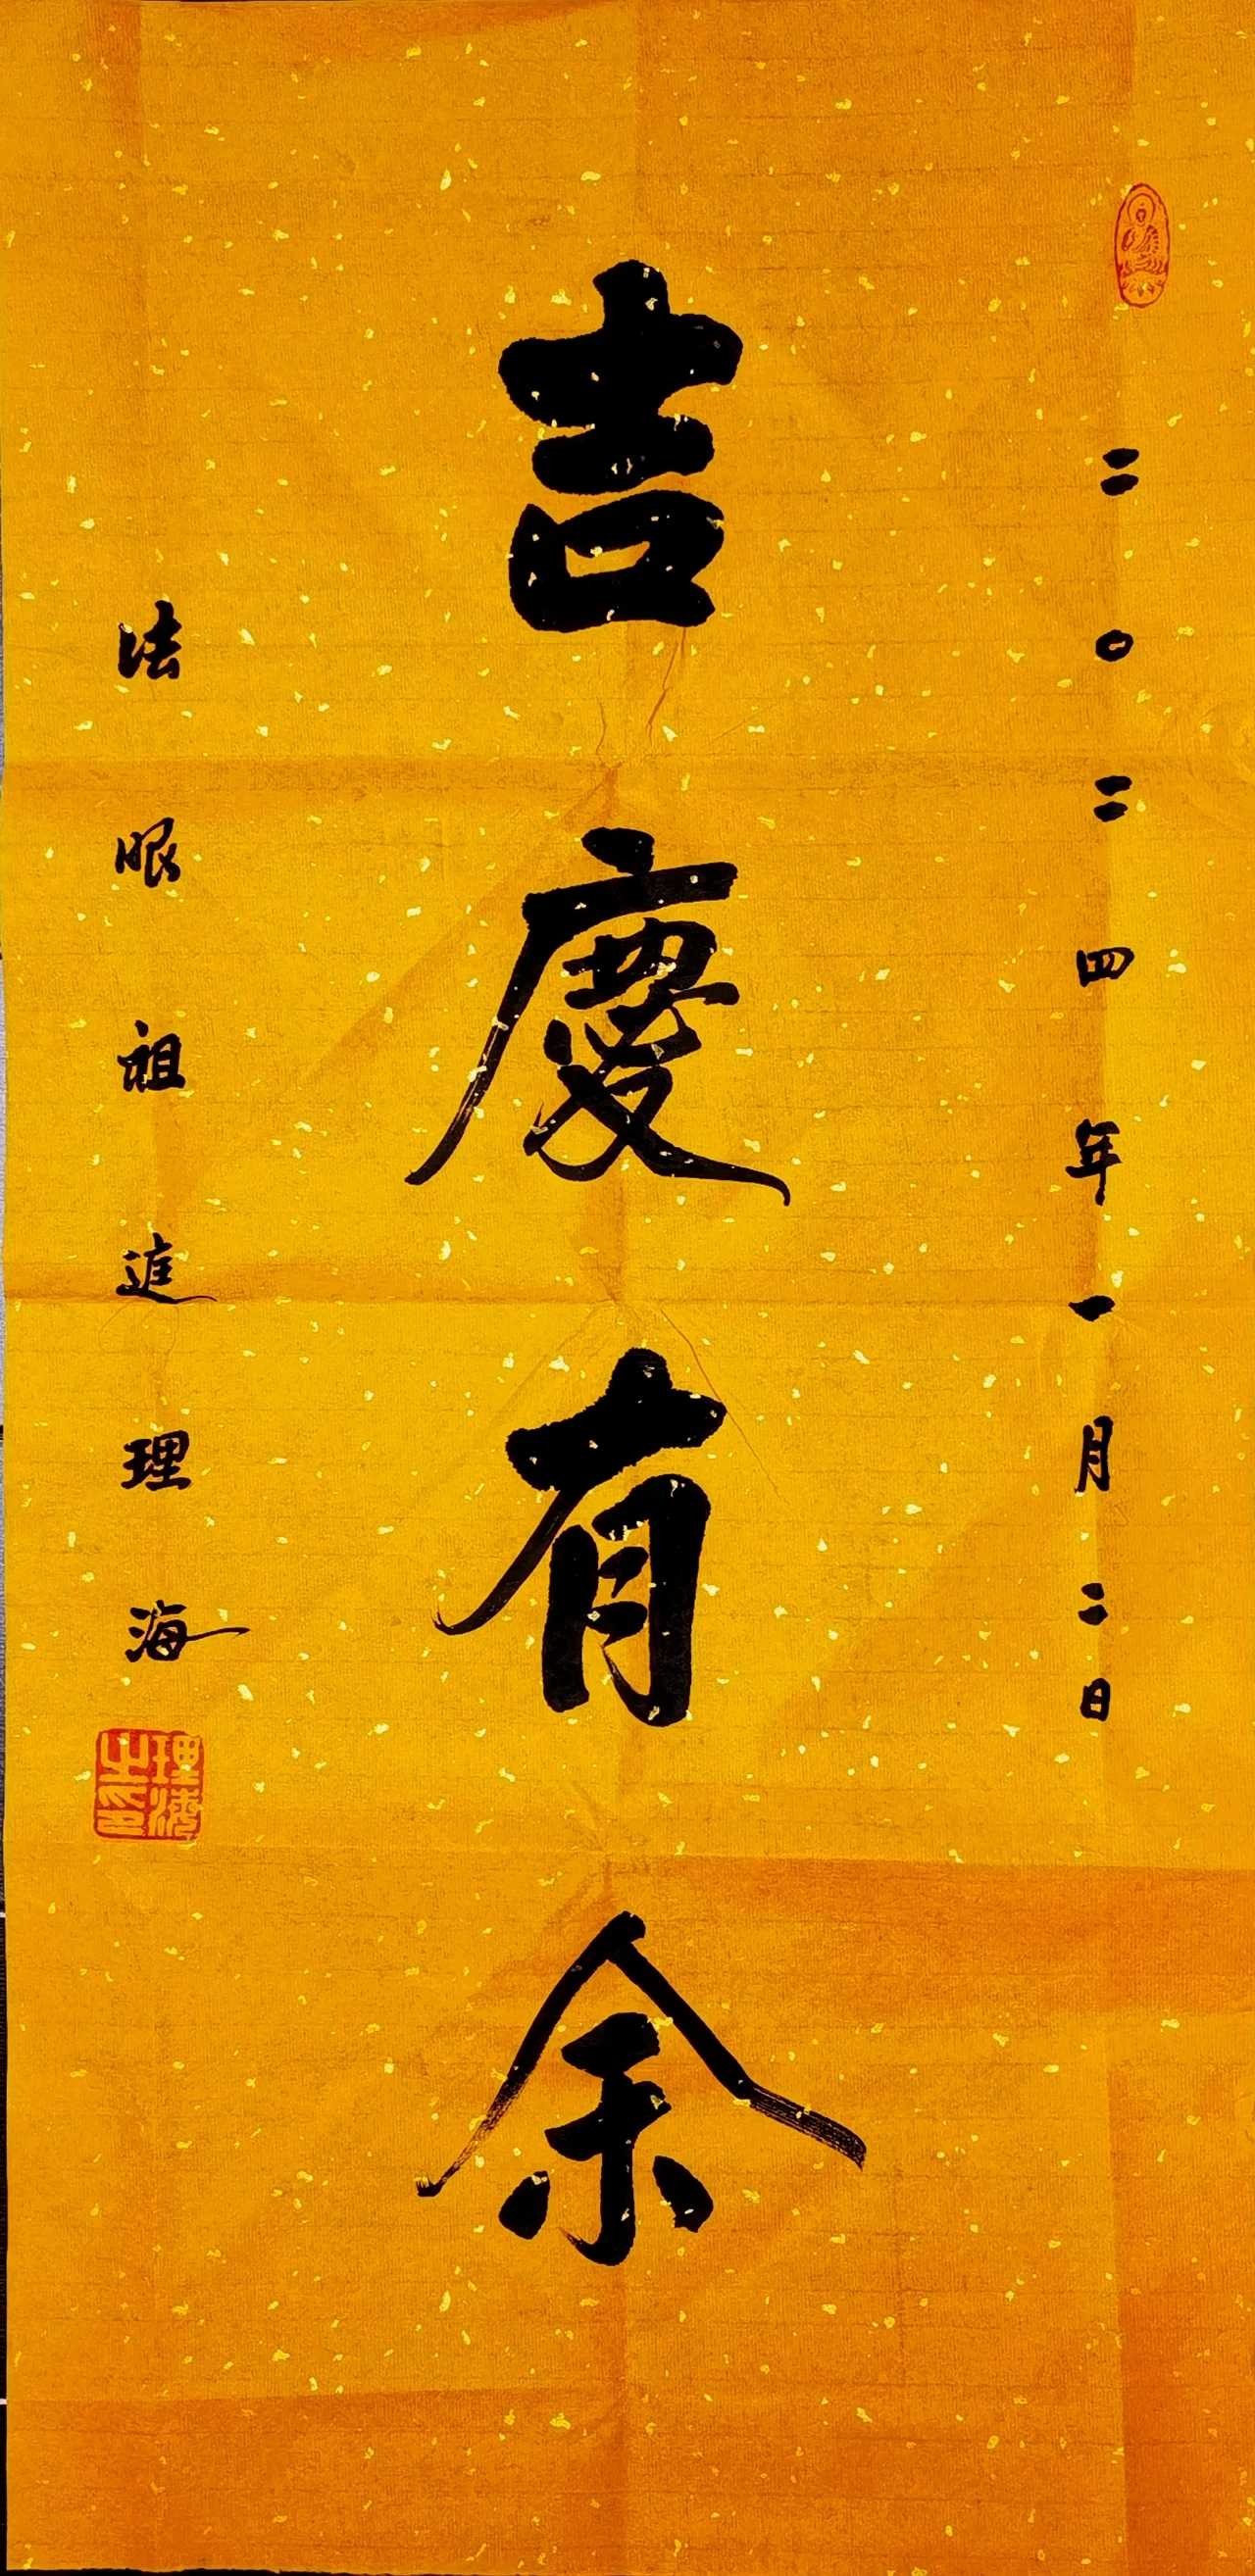 二〇二四年一月二日
吉慶有余
法眼祖庭理海
理海之印